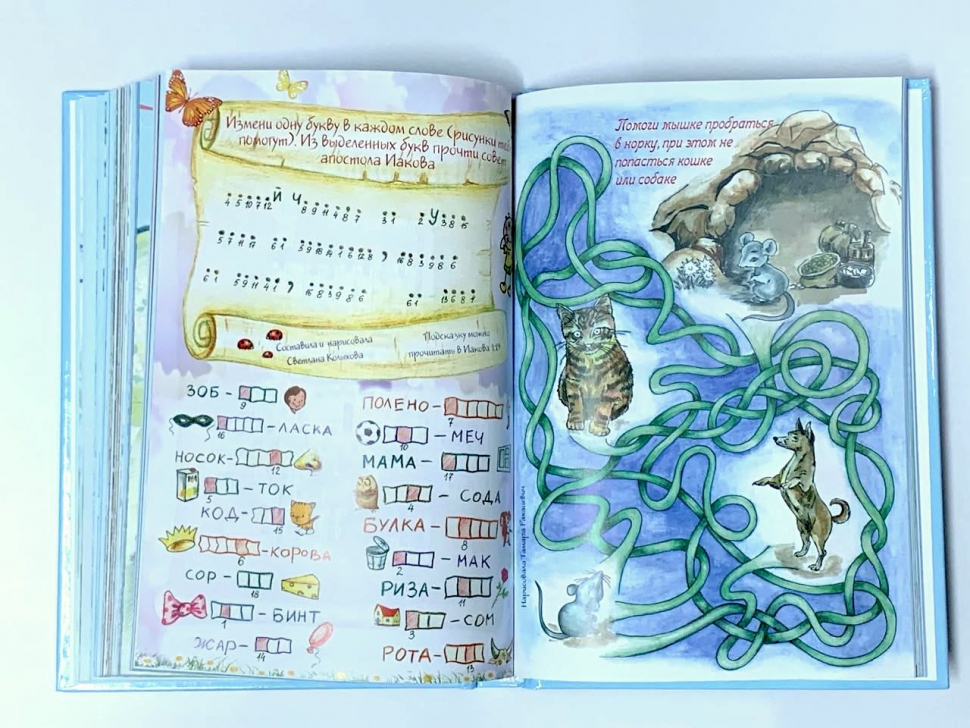 Измени одну букву в каждом слове (рисунки
помогут). Из выделенных букв прочти совет
апостола Иакова
Й Ч
4 5 10 7 12 8 9 11 4 8 7 3 1 2 У 3 8 15
Составила и нарисовала
Светлана
Подсказку можно
прочитать в Иакова
ЗОБ -
9
16
- ЛАСКА
НОСОК -
12
5
- ТОК
КОД -
15
6
- КОРОВА
СОР -
18
1
- БИНТ
ЖАР -
14
ПОЛЕНО -
7
10
- МЕЧ
МАМА -
17
4
- СОДА
БУЛКА -
8
2
- МАК
РИЗА -
11
3
- СОМ
РОТА -
13
Помоги мышке пробраться
в норку, при этом не
попасться кошке
или собаке
Нарисовала Тамара